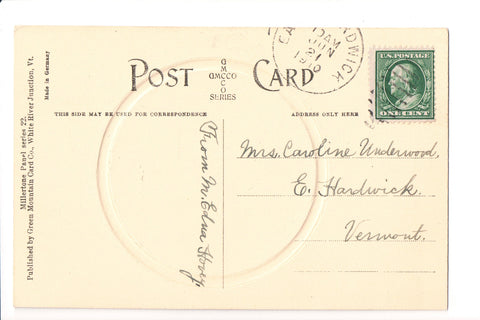 Millertone Panel series 22.
Made in Germany
Published by Green Mountain Card Co., White River Junction, Vt.
POST CARD
G
M
GMCCO
C
O
SERIES
THIS SIDE MAY BE USED FOR CORRESPONDENCE
ADDRESS ONLY HERE
10AM
JUN
21
1910
U.S. POSTAGE
ONE CENT
From M. Edna Hovey.
Mrs. Caroline Underwood,
E. Hardwick.
Vermont.